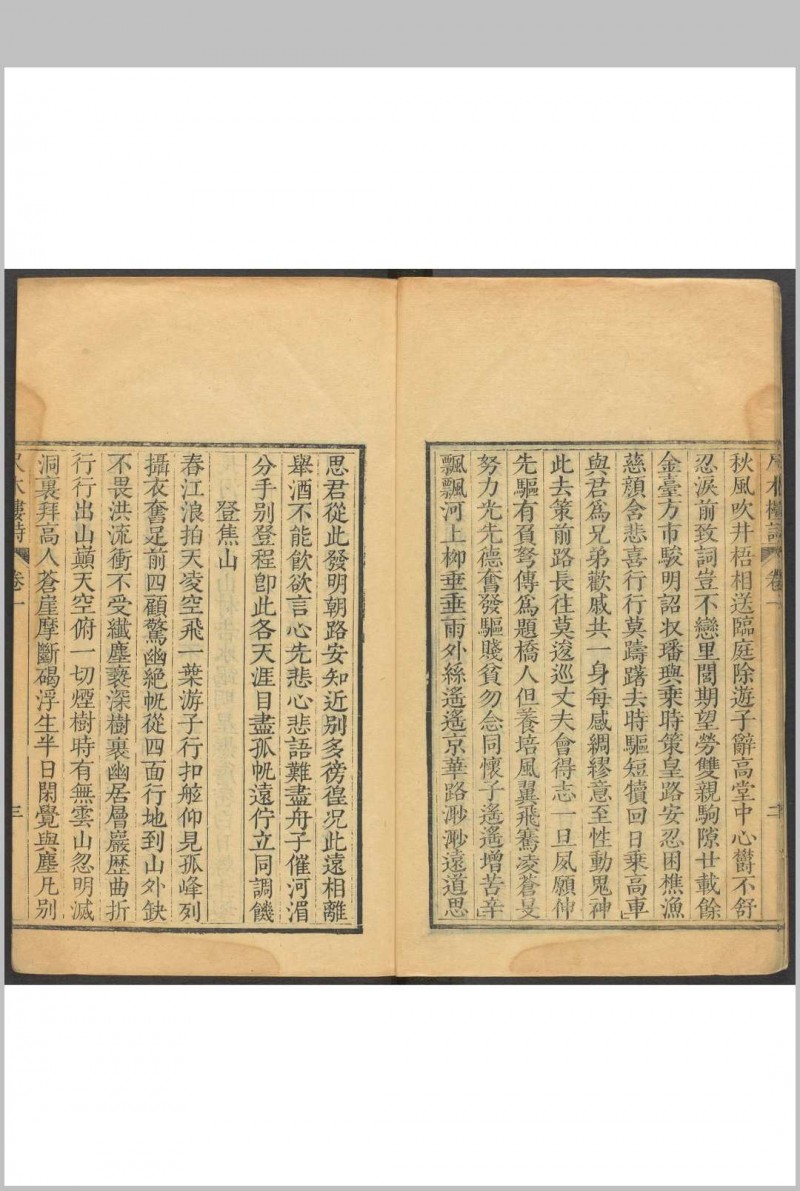 秋風吹井梧相送臨庭除遊子辭高堂中心鬱不舒
忍淚前致詞豈不戀里閭期望勞雙親駒隙廿載餘
金臺方市駿明詔收璠璵乘時策皇路安忍困樵漁
慈顏舍悲喜行行莫躊躇去時驅短犢回日乘高車
與君爲兄弟歡戚共一身每感綢繆意至性動鬼神
此去策前路長往莫逡巡丈夫會得志一旦夙願伸
先驅有負弩傳爲題橋人但養培風翼飛騫凌蒼旻
努力光先德奮發驅賤貧勿念同懷子遙遙增苦辛
飄飄河上柳垂垂雨外絲遙遙京華路渺渺遠道思
卷一
二
思君從此發明朝路安知近別多徬徨況此遠相離
舉酒不能飲欲言心先悲心悲語難盡舟子催河湄
分手別登程卽此各天涯目盡孤帆遠佇立同調饑
登焦山
春江浪拍天凌空飛一葉游子行扣舷仰見孤峰列
攝衣奮足前四顧驚幽絕帆從四面行地到山外缺
不畏洪流衝不受纖塵褻深樹裏幽居層巖歷曲折
行行出山巔天空俯一切煙樹時有無雲山忽明滅
洞裏拜高人蒼崖摩斷碣浮生半日閑覺與塵凡別
尺木樓詩
卷一
三